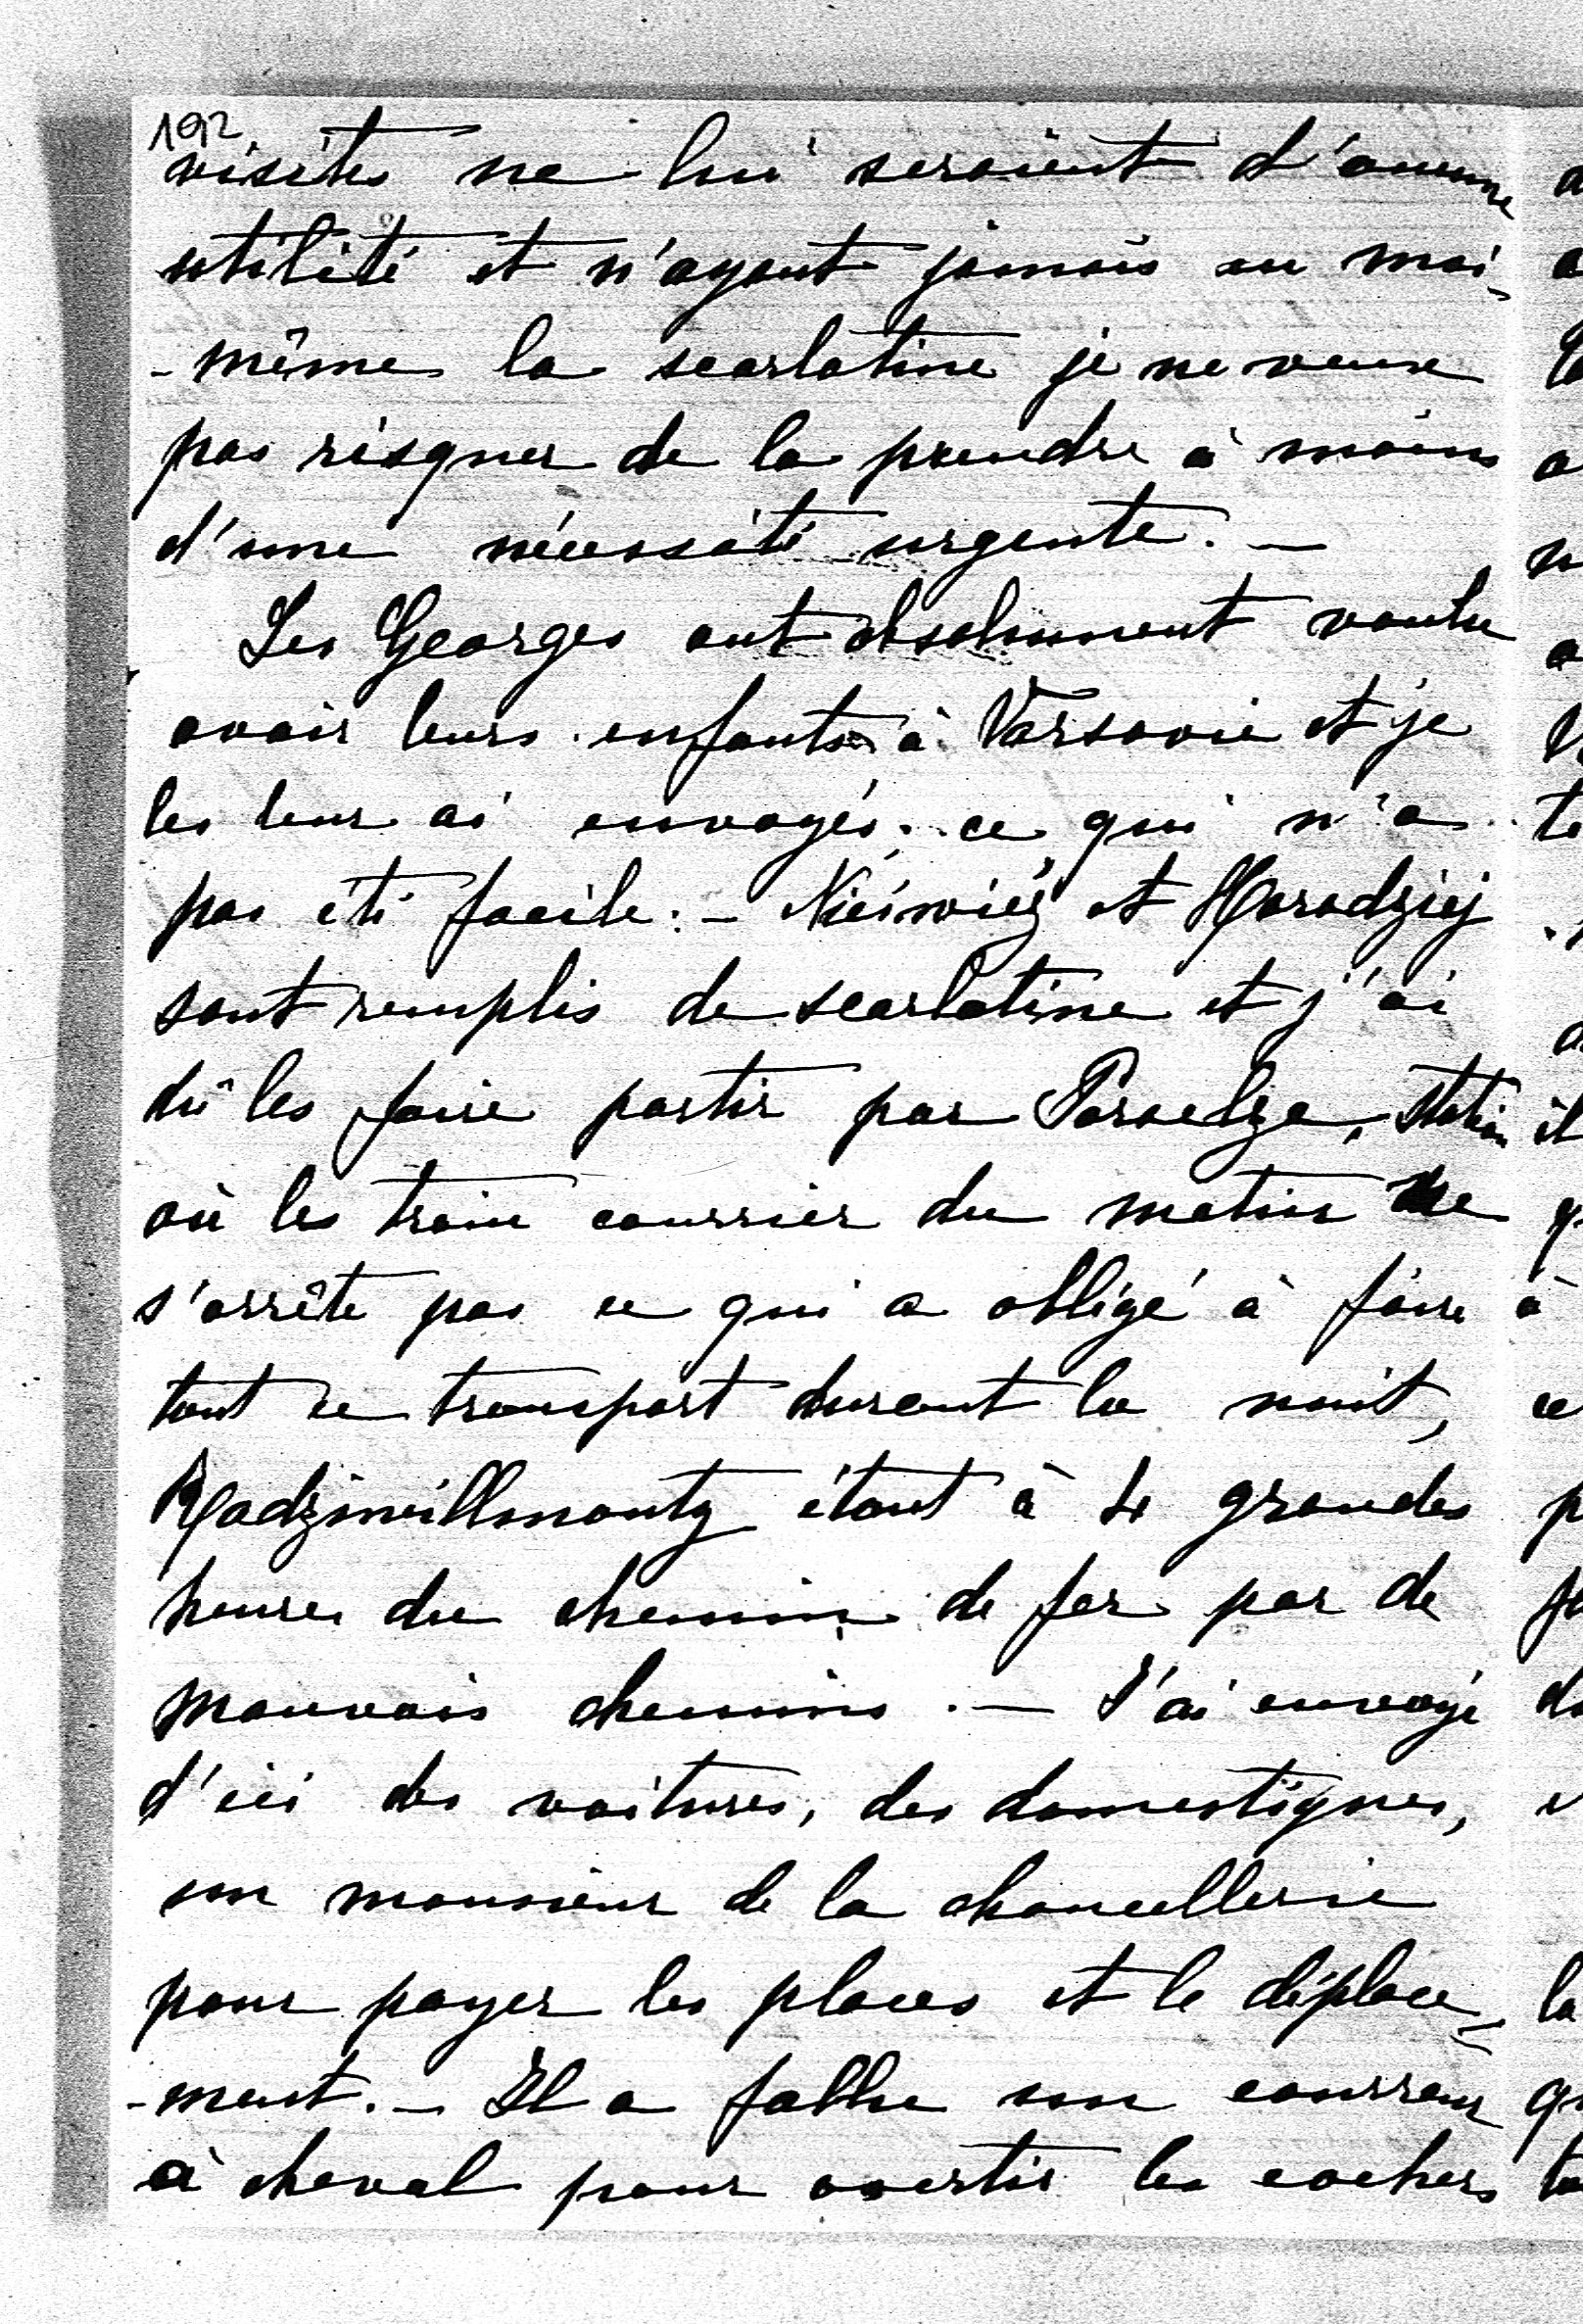 192
visites ne lui seraient d'aucune
utilité et n'ayant jamais eu moi-
-même la scarlatine je ne veux
pas risquer de la prendre à moins
d'une nécessité urgente. —
Les Georges ont absolument voulu
avoir leurs enfants à Varsovie et je
les leur ai envoyés; ce qui n'a
pas été facile. — Nieswież et Horodziej
sont remplis de scarlatine et j'ai
dû les faire partir par station
où les train courrier du matin ne
s'arrête pas ce qui a obligé à faire
tout ce transport durant la nuit,
Radziwillmonty étant à 4 grandes
heures du chemin de fer par de
mauvais chemins. — J'ai envoyé
d'ici des voitures, des domestiques,
un monsieur de la chancellerie
pour payer les places et le déplace-
-ment. — Il a fallu un courreur
à cheval pour avertir les cochers